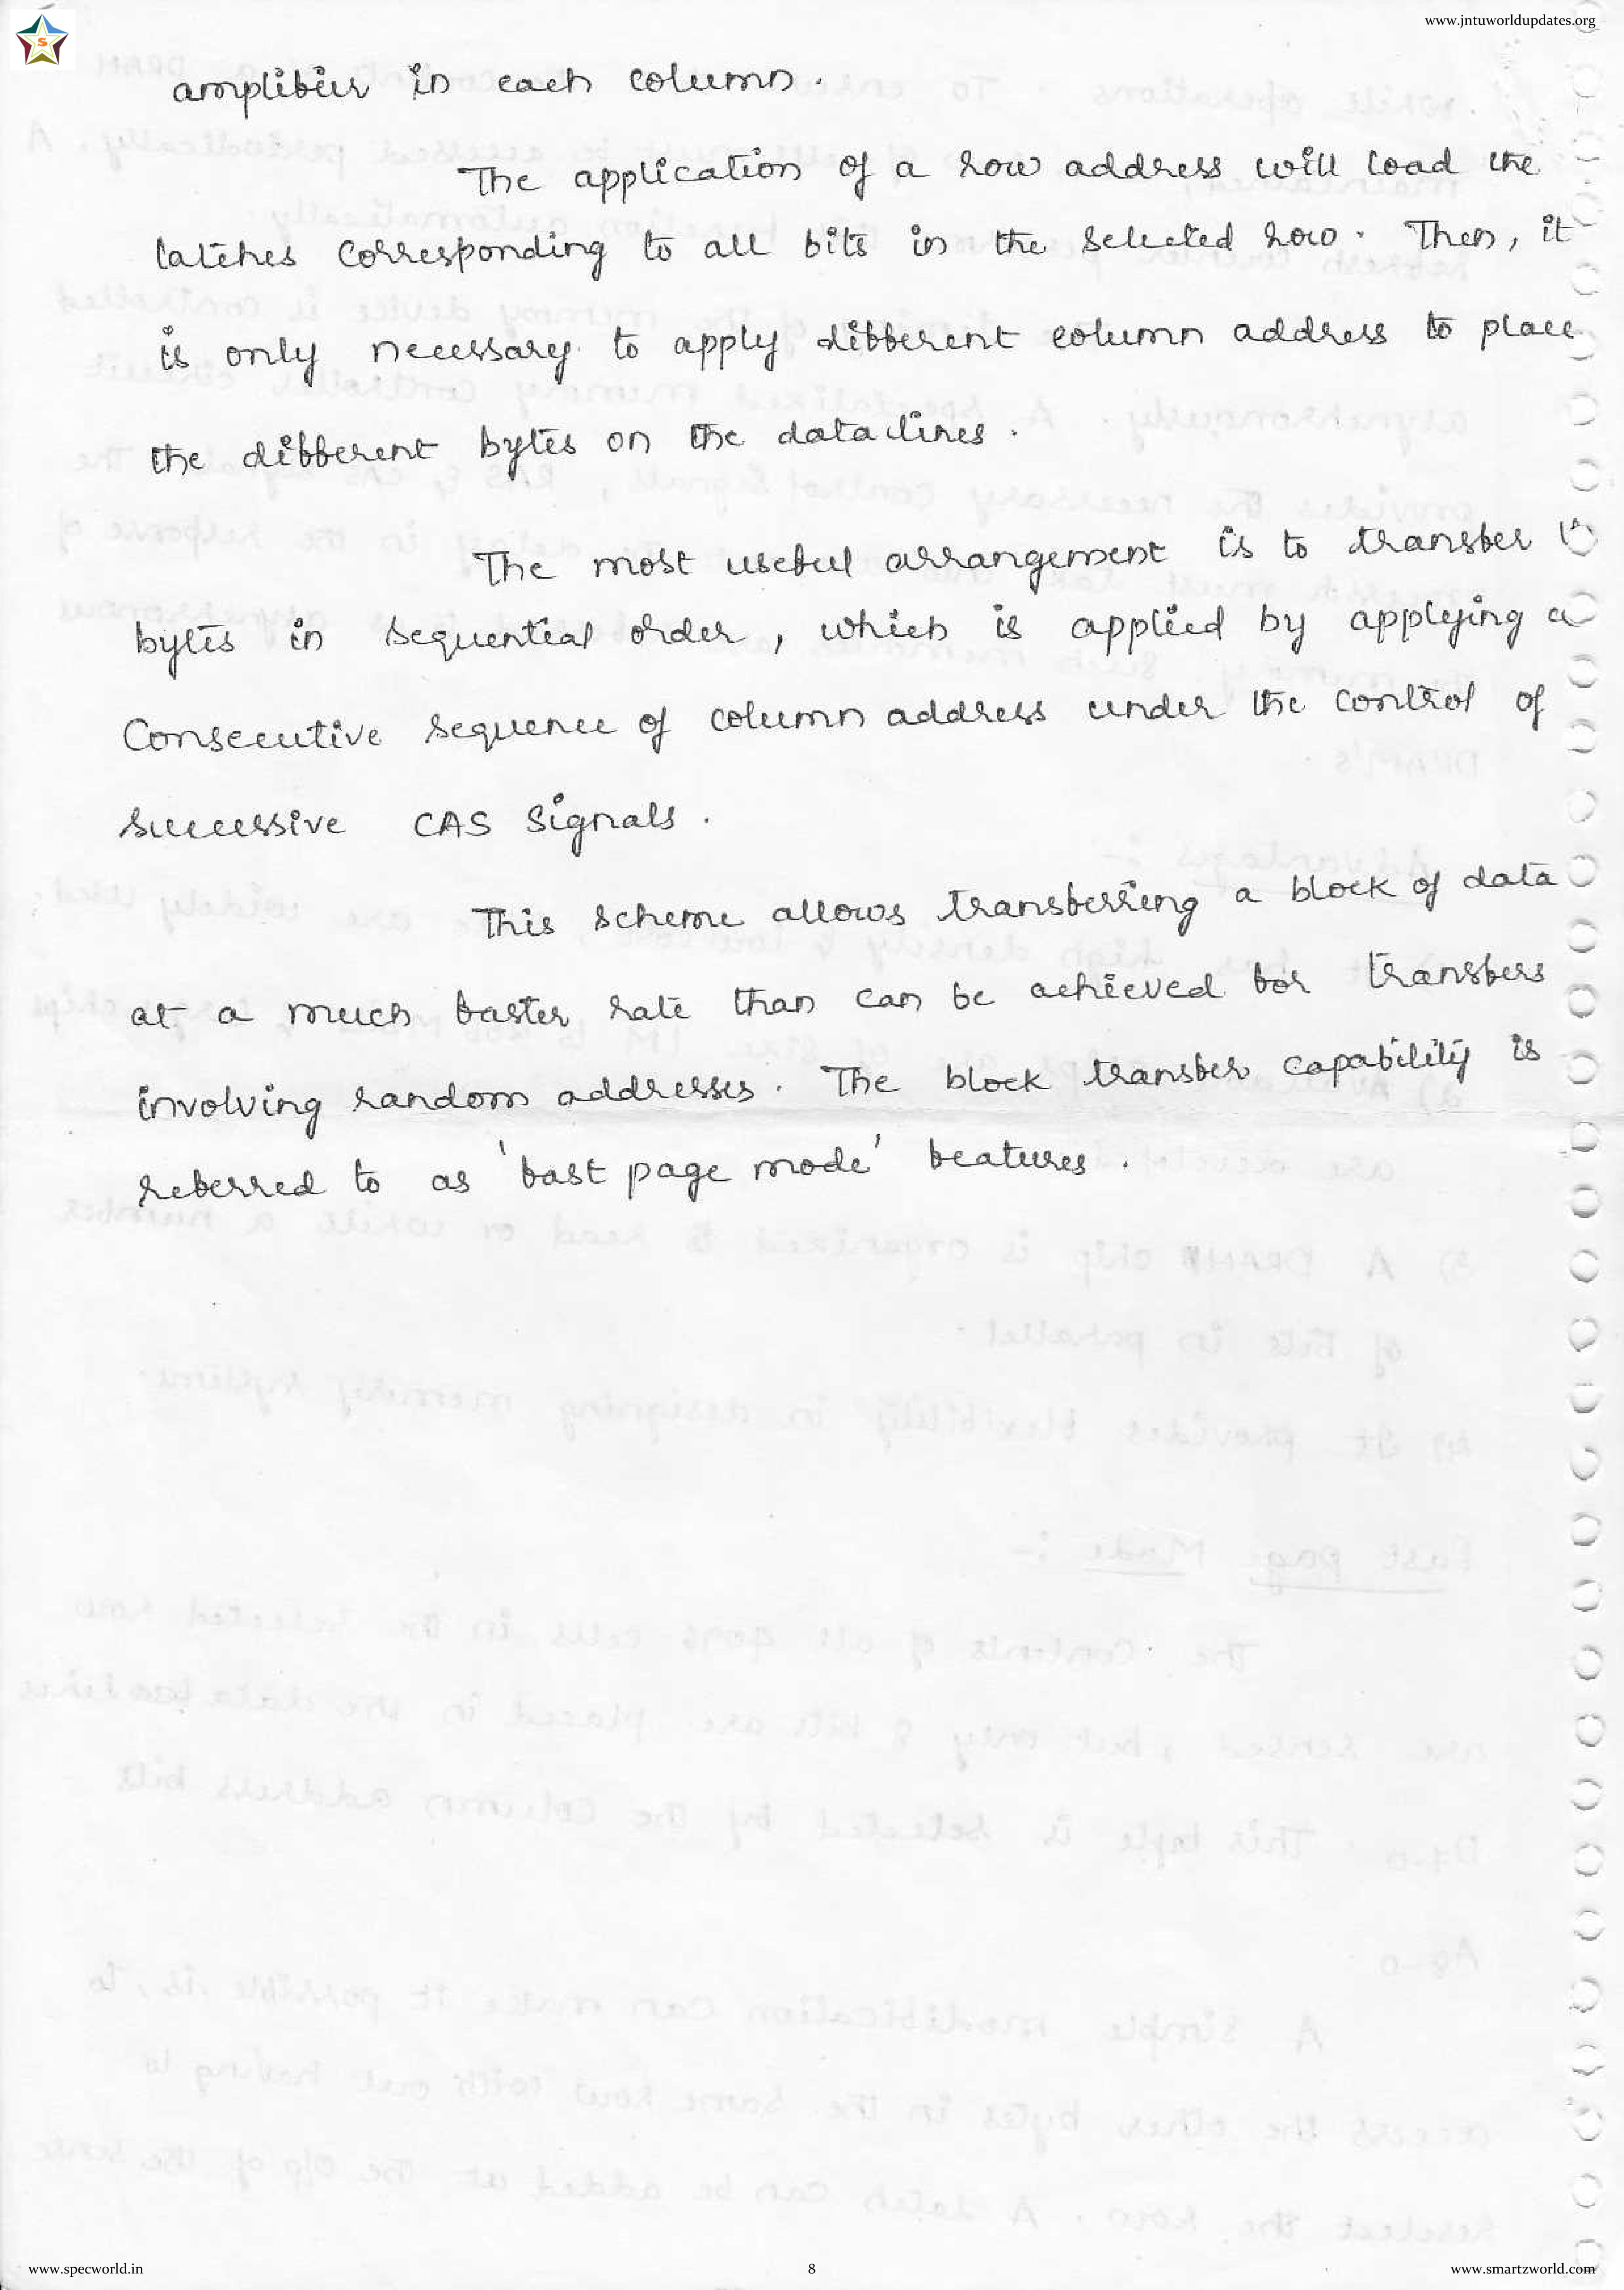 www.jntuworldupdates.org
S
amplifier in each column.
The application of a row address will load the
latches corresponding to all bits in the selected row. Then, it
is only necessary to apply different column address to place
the different bytes on the data lines.
The most useful arrangement is to transfer
bytes in sequential order, which is applied by applying a
Consecutive sequence of column address under the control of
successive CAS signals.
This scheme allows transferring a block of data
at a much faster rate than can be achieved for transfers
involving random addresses. The block transfer capability is
referred to as 'fast page mode' features.
www.specworld.in
8
www.smartzworld.com